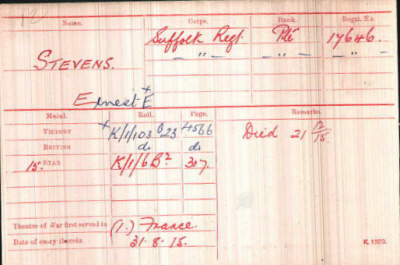 Name. Corps. Rank. Regtl. No.
STEVENS. Suffolk Regt. Pte 17646.
— " — — " — — " —
Ernest E
Medal. Roll. Page. Remarks.
VICTORY K/1/103 B23 4566 Died 21/12/15.
BRITISH do do
15 STAR K/1/6B2 307.
Theatre of War first served in (1.) France.
Date of entry therein 31.8.15.
K. 1380.